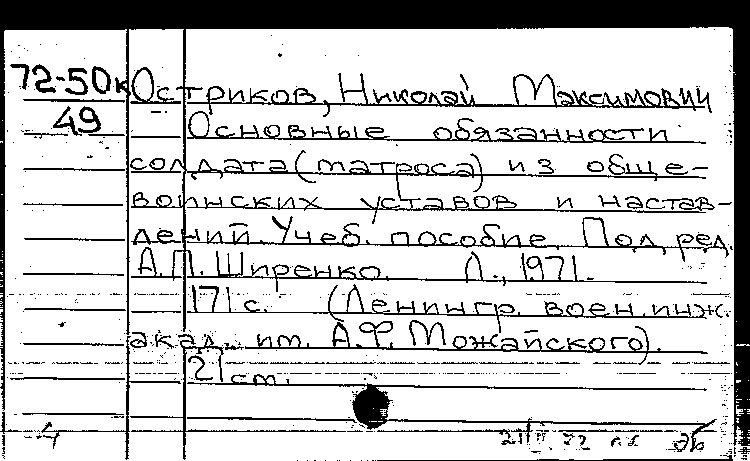 72-50к Остриков, Николай Максимович
49 Основные обязанности
солдата (матроса) из обще-
воинских уставов и настав-
лений. Учеб. пособие. Под ред.
А.П. Ширенко. Л., 1971.
171 с. (Ленингр. воен. инж.
акад. им. А.Ф. Можайского).
21 см.
4